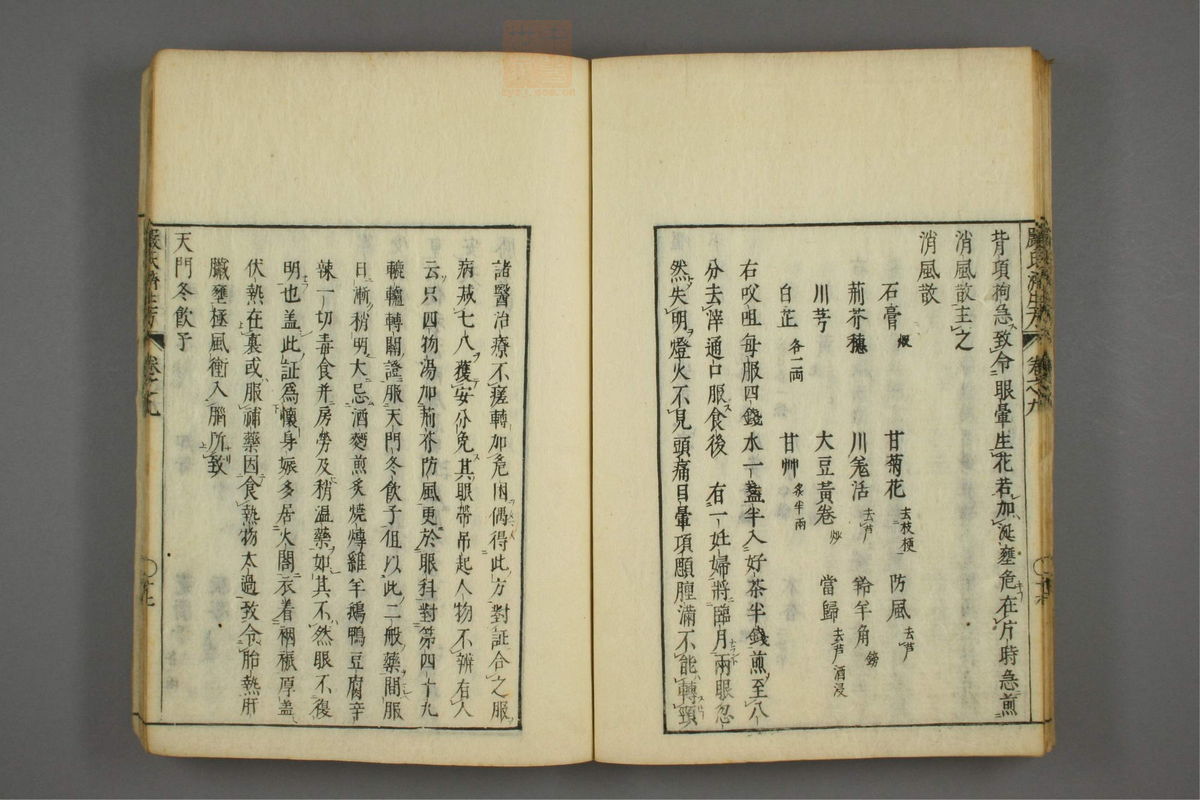 背項拘急致令眼暈生花若加涎壅危在片時急煎
消風散主之
消風散
石膏 煆 甘菊花 去枝梗 防風 去芦
荊芥穗 川羗活 去芦 羚羊角 鎊
川芎 大豆黃卷 炒 當歸 去芦酒浸
白芷 各一両 甘艸 炙半兩
右㕮咀每服四錢水一盞半入好茶半錢煎至八
分去滓通口服食後 有一妊婦將臨月兩眼忽
然失明燈火不見頭痛目暈項顋腫滿不能轉頸
諸醫治療不瘥轉加危困偶得此方對証合之服
病减七八獲安分免其眼帶吊起人物不辨有人
云只四物湯加荊芥防風更於眼科對第四十九
轆轤轉關證服天門冬飲子但以此二般藥間服
日漸稍明大忌酒麵煎炙燒煿雞羊鵝鴨豆腐辛
辣一切毒食并房勞及稍溫藥如其不然眼不復
明也盖此証爲懷身娠多居火閣衣着裀褥厚盖
伏熱在裏或服補藥因食熱物太過致令胎熱肝
臟壅極風衝入腦所致
天門冬飲子
嚴氏濟生方 卷之九
嚴氏濟生方 卷之九